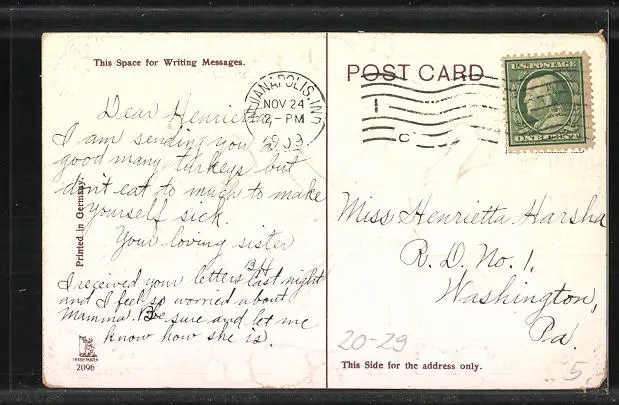 This Space for Writing Messages.
POST CARD
U.S. POSTAGE
ONE CENT
INDIANAPOLIS, IND.
NOV 24
2 - PM
Dear Henrietta
I am sending you a
good many turkeys but
don't eat to much to make
yourself sick.
Your loving sister
I received your letters last night
and I feel so worried about
Mamma. Be sure and let me
know how she is.
Printed in Germany.
TRADE MARK
2096
Miss Henrietta Harsha
R. D. No. 1,
Washington,
Pa.
20-29
This Side for the address only.
5.